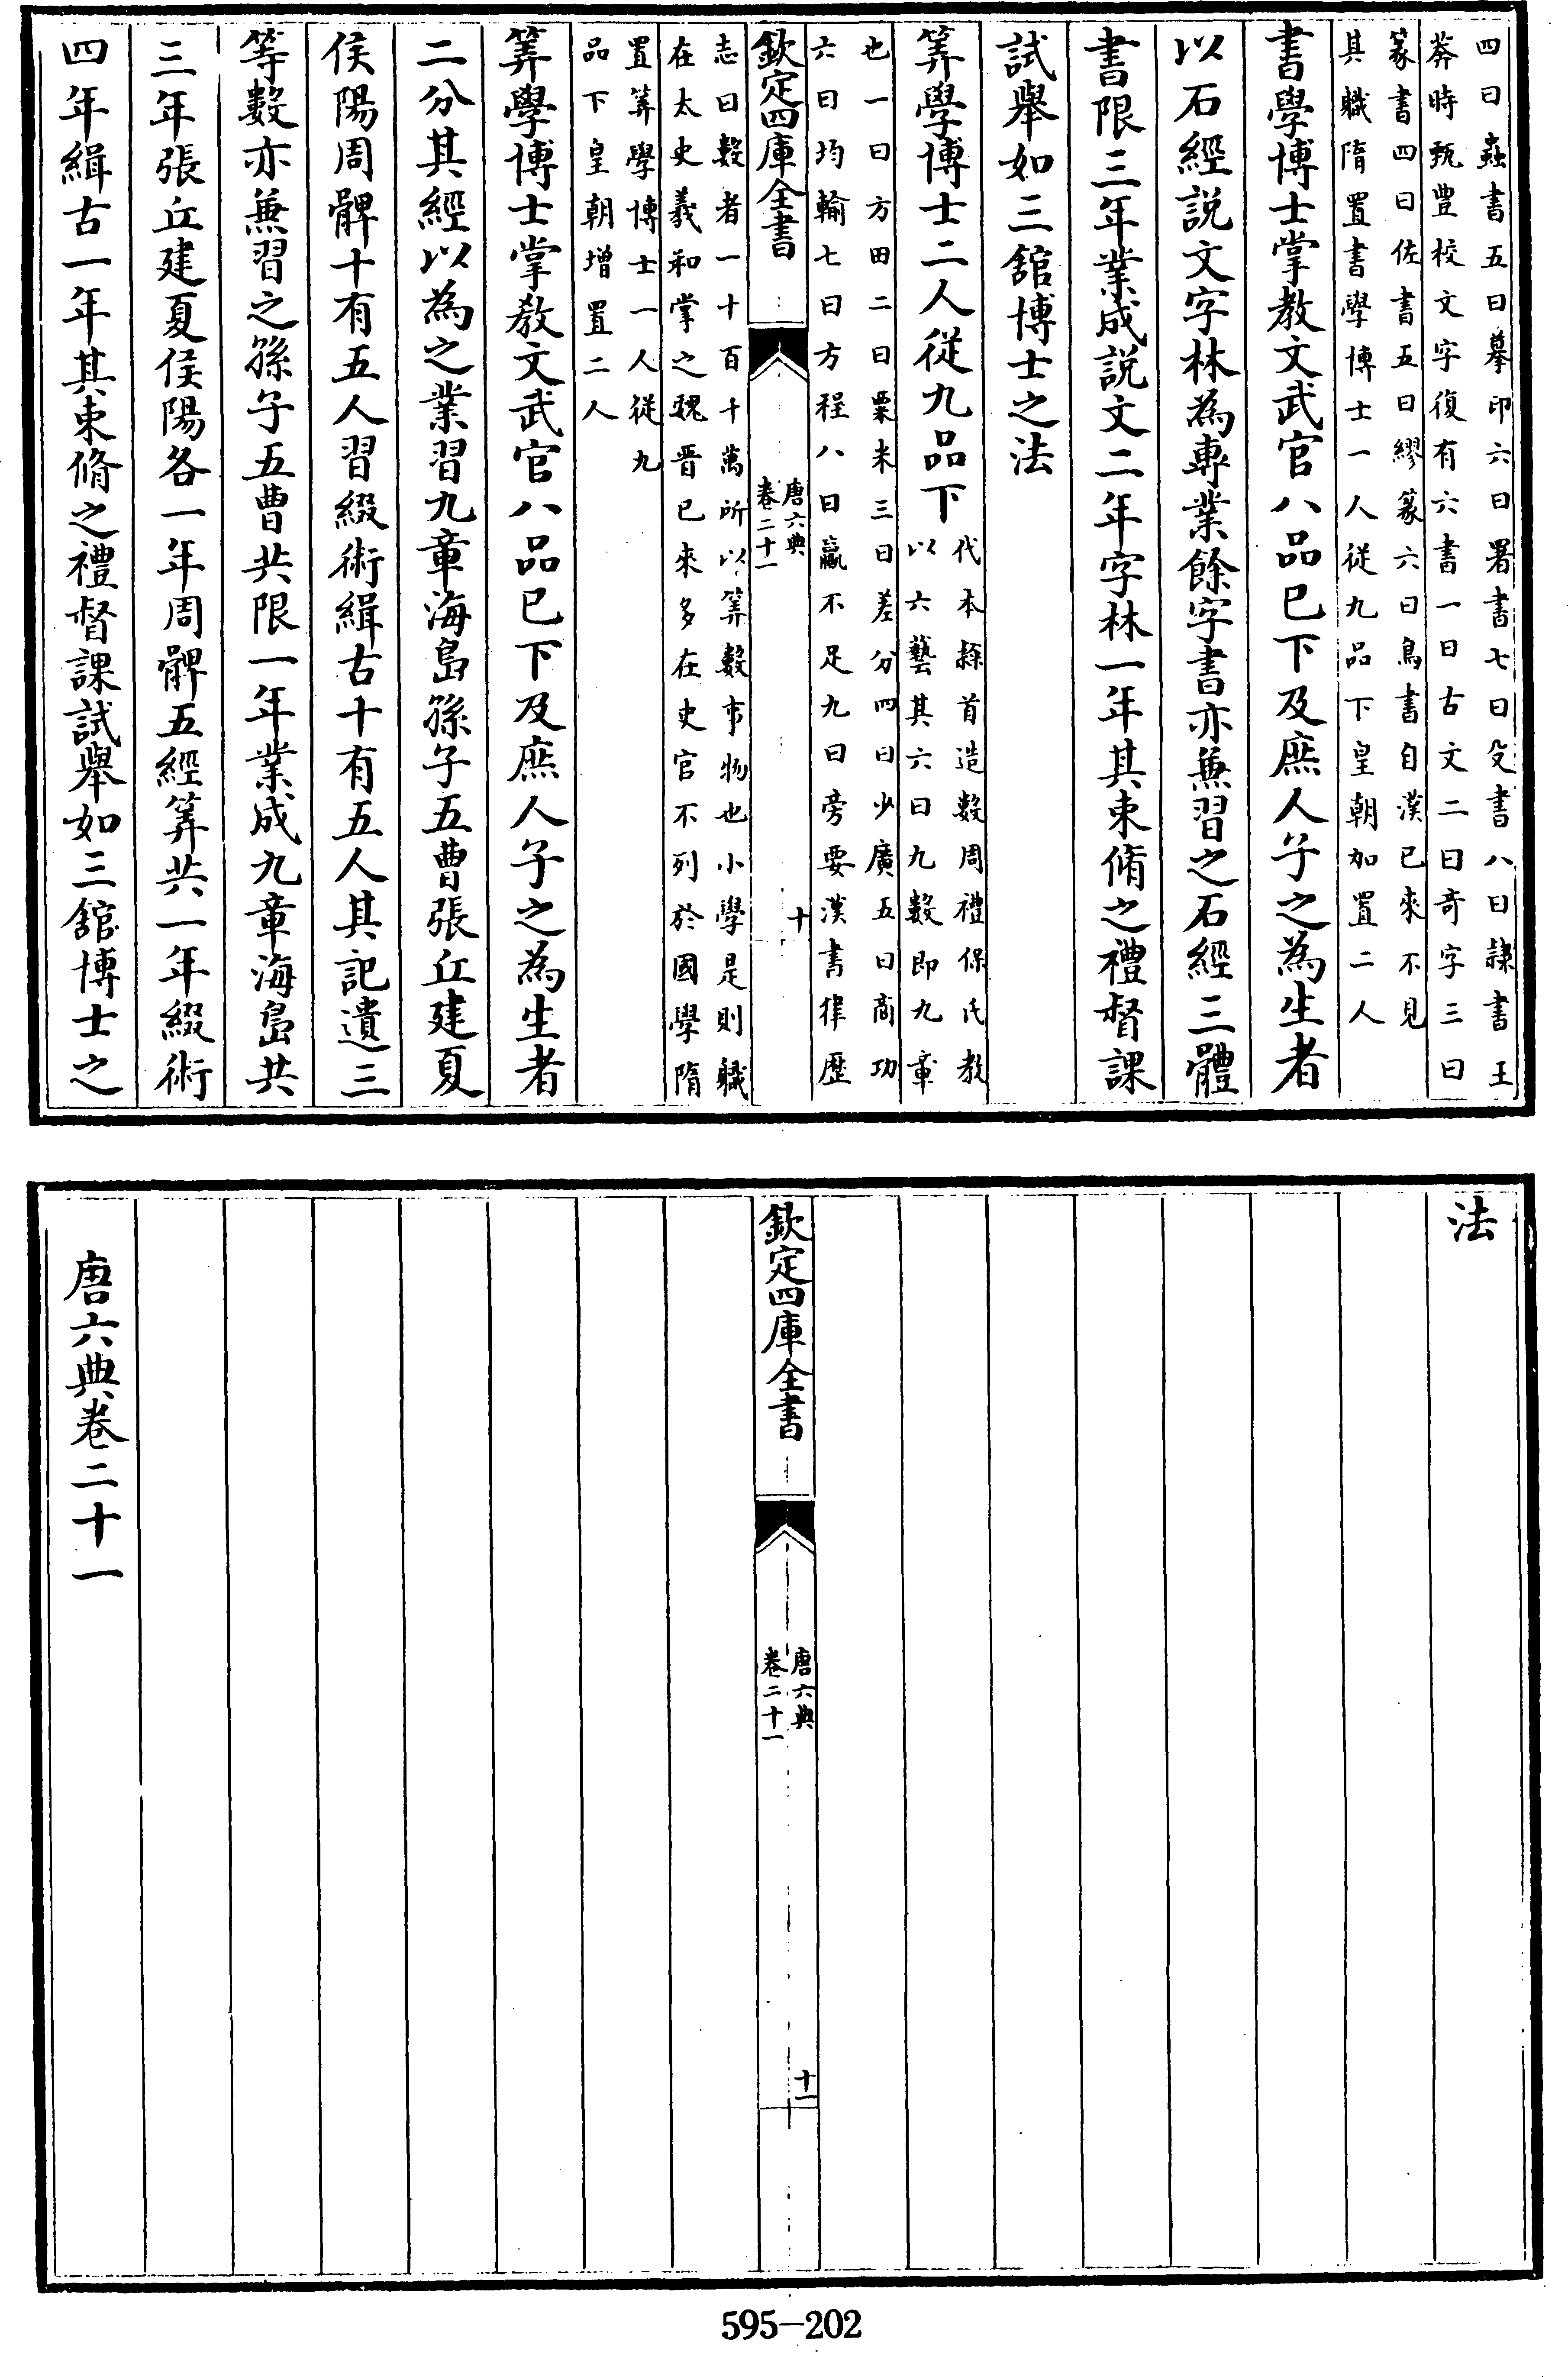 四曰蟲書五曰摹印六曰署書七曰殳書八曰隷書王
莽時甄豊校文字復有六書一曰古文二曰奇字三曰
篆書四曰佐書五曰繆篆六曰鳥書自漢已來不見
其職隋置書學博士一人從九品下皇朝加置二人
書學博士掌教文武官八品已下及庶人子之為生者
以石經説文字林為專業餘字書亦兼習之石經三體
書限三年業成説文二年字林一年其束脩之禮督課
試舉如三舘博士之法
筭學博士二人從九品下
代本隸首造數周禮保氏教
以六藝其六曰九數即九章
也一曰方田二曰粟米三曰差分四曰少廣五曰商功
六曰均輸七曰方程八曰贏不足九曰旁要漢書律歴
欽定四庫全書
唐六典
卷二十一
十
志曰數者一十百千萬所以筭數事物也小學是則職
在太史羲和掌之魏晉已來多在史官不列於國學隋
置筭學博士一人從九
品下皇朝增置二人
筭學博士掌教文武官八品已下及庶人子之為生者
二分其經以為之業習九章海島孫子五曹張丘建夏
侯陽周髀十有五人習綴術緝古十有五人其記遺三
等數亦兼習之孫子五曹共限一年業成九章海島共
三年張丘建夏侯陽各一年周髀五經筭共一年綴術
四年緝古一年其束脩之禮督課試舉如三舘博士之
法
欽定四庫全書
唐六典
卷二十一
十一
唐六典卷二十一
595-202